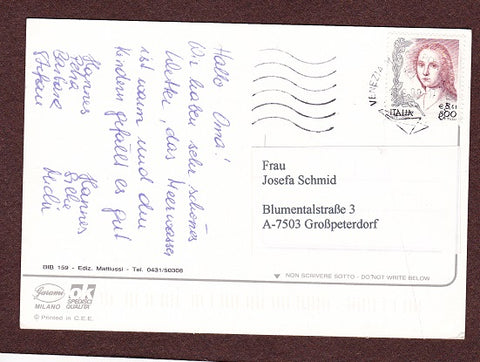 Hallo Oma!
Wir haben sehr schönes
Wetter, das Meerwasser
ist warm und den
Kindern gefällt es gut
Hannes Hannes
Petra Silke
Barbara Michi
Stefan
VENEZIA
ITALIA
€ 0,41
800
Frau
Josefa Schmid
Blumentalstraße 3
A-7503 Großpeterdorf
BIB 159 - Ediz. Mattiussi - Tel. 0431/50306
NON SCRIVERE SOTTO - DO NOT WRITE BELOW
Garami
MILANO
OK
SPEDISCI
QUALITÀ
© Printed in C.E.E.